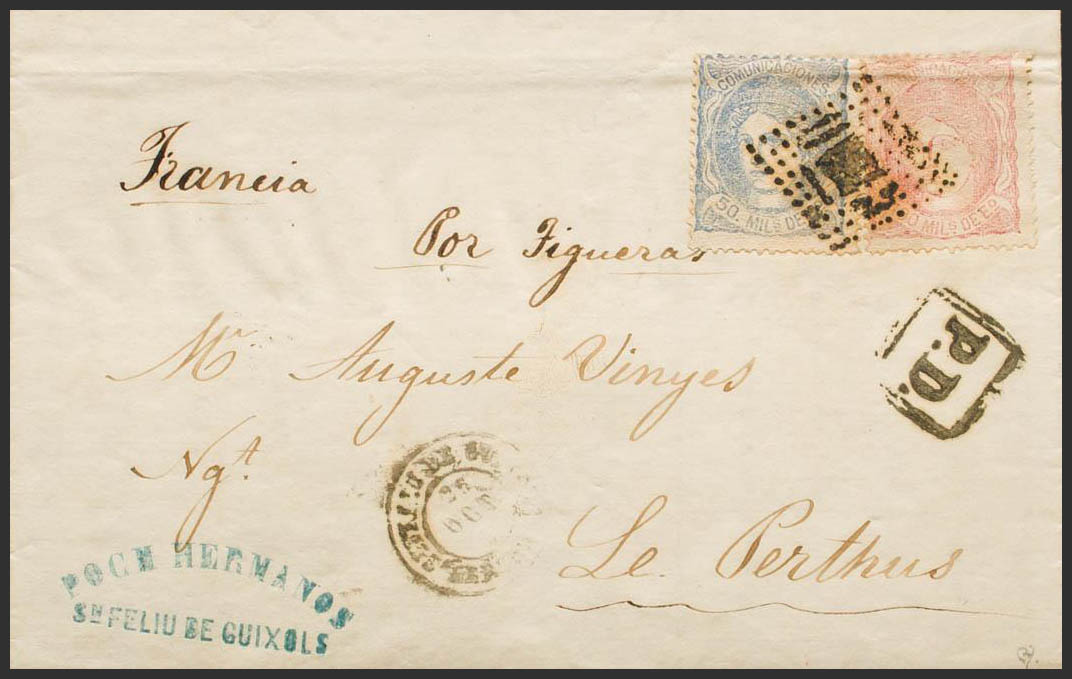 COMUNICACIONES
50 MILS DE
MILS DE E.O
Francia
Por Figueras
P.D.
Mr. Auguste Vinyes
Ngt.
Le Perthus
25
OCT
POCH HERMANOS
SN FELIU DE GUIXOLS